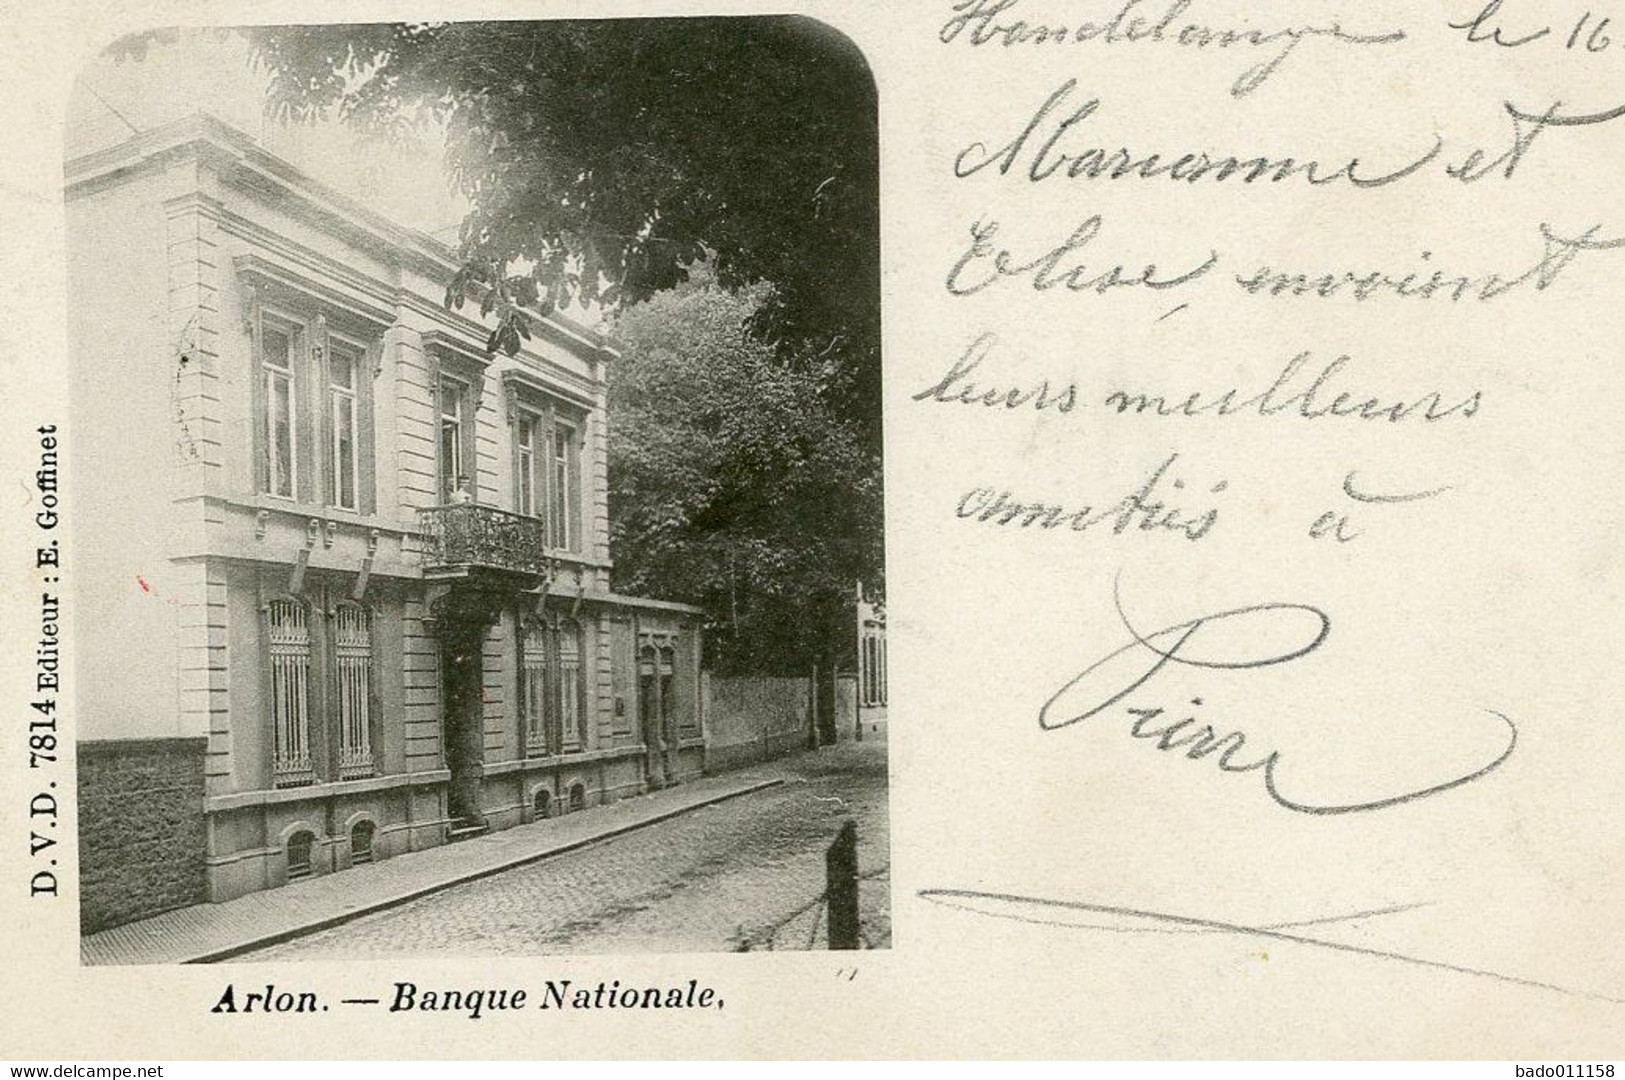 Hondelange le 16
Marianne et
Elise, envoient
leurs meilleurs
amitiés à
Pierre
D.V.D. 7814 Editeur : E. Goffinet
Arlon. — Banque Nationale.
delcampe.net
bado011158